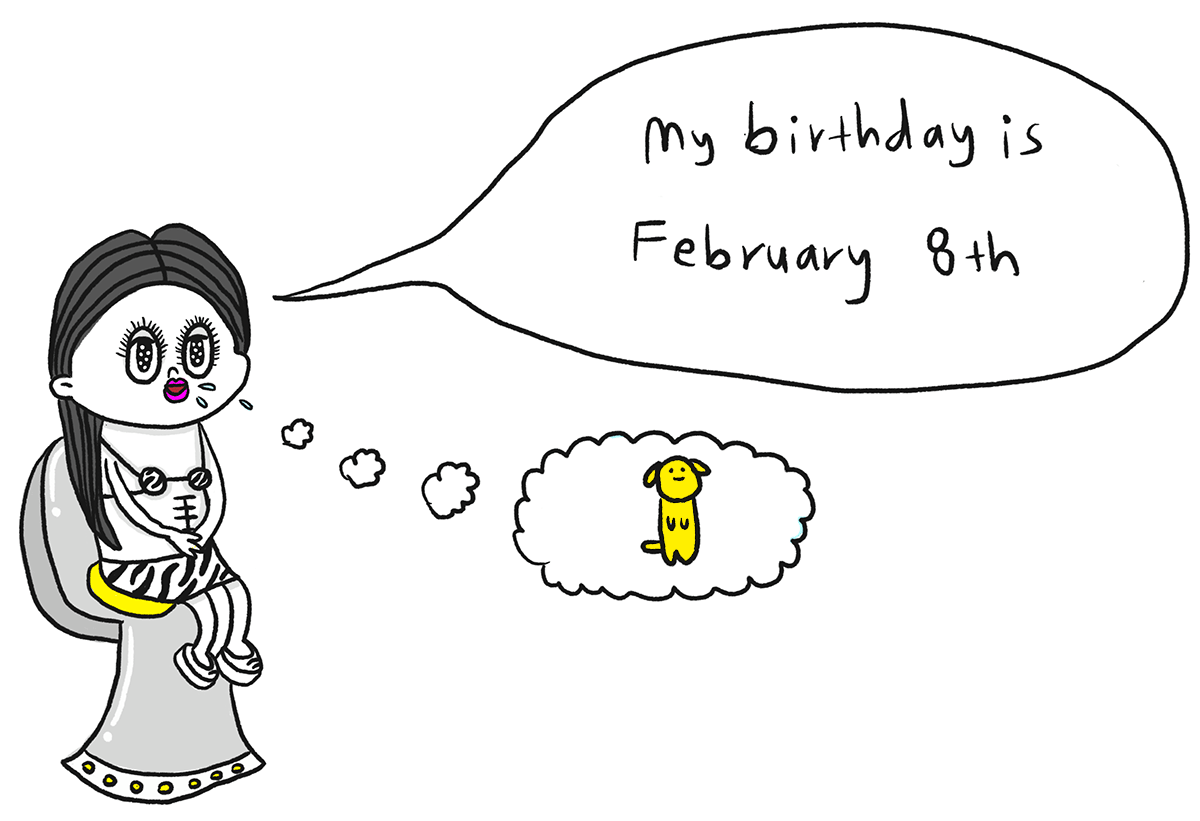 My birthday is
February 8th